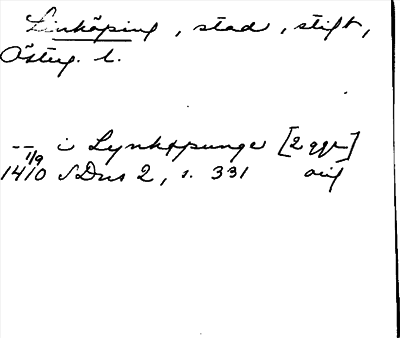 Linköping, stad, stift,
Österg. l.
-- i Lynkøpunge [2 ggr]
1/9
1410 SDns 2, s. 331 orig